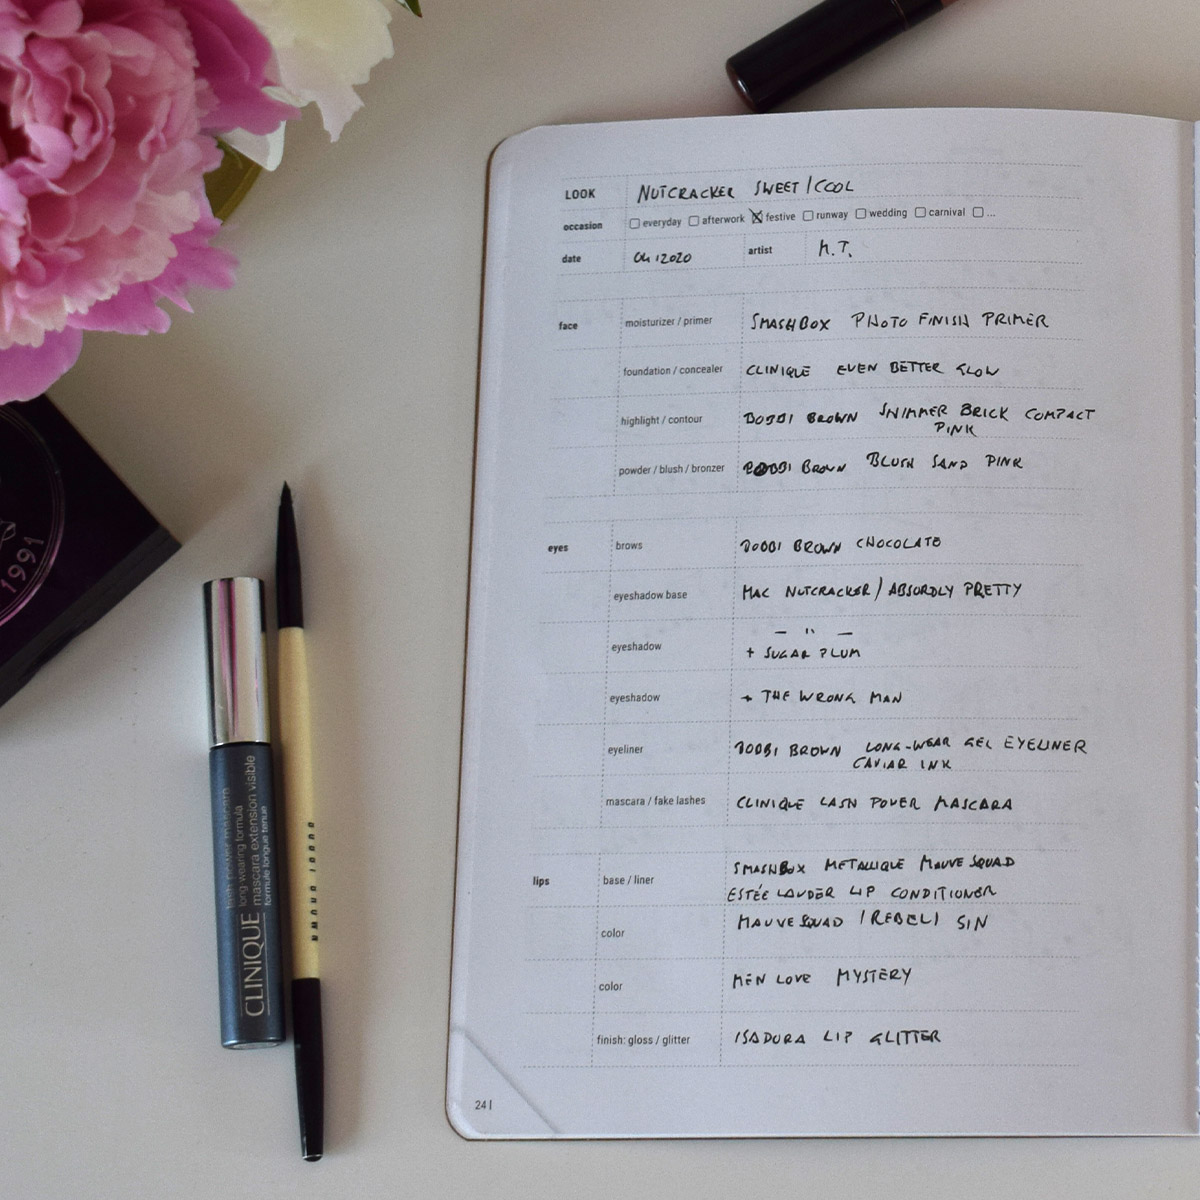 LOOK NUTCRACKER SWEET/COOL
occasion everyday afterwork festive runway wedding carnival ...
date 04 / 2020 artist M.T.
face moisturizer / primer SMASHBOX PHOTO FINISH PRIMER
foundation / concealer CLINIQUE EVEN BETTER GLOW
highlight / contour BOBBI BROWN SHIMMER BRICK COMPACT
PINK
powder / blush / bronzer BOBBI BROWN BLUSH SAND PINK
eyes brows BOBBI BROWN CHOCOLATE
eyeshadow base MAC NUTCRACKER/ABSURDLY PRETTY
— " —
eyeshadow + SUGAR PLUM
eyeshadow + THE WRONG MAN
eyeliner BOBBI BROWN LONG-WEAR GEL EYELINER
CAVIAR INK
mascara / fake lashes CLINIQUE LASH POWER MASCARA
SMASHBOX METALLIQUE MAUVE SQUAD
lips base / liner ESTÉE LAUDER LIP CONDITIONER
color MAUVE SQUAD /REBEL/ SIN
color MEN LOVE MYSTERY
finish: gloss / glitter ISADORA LIP GLITTER
24 |
1991
CLINIQUE
lash power mascara
long wearing formula
mascara extension visible
formule longue tenue
BOBBI BROWN